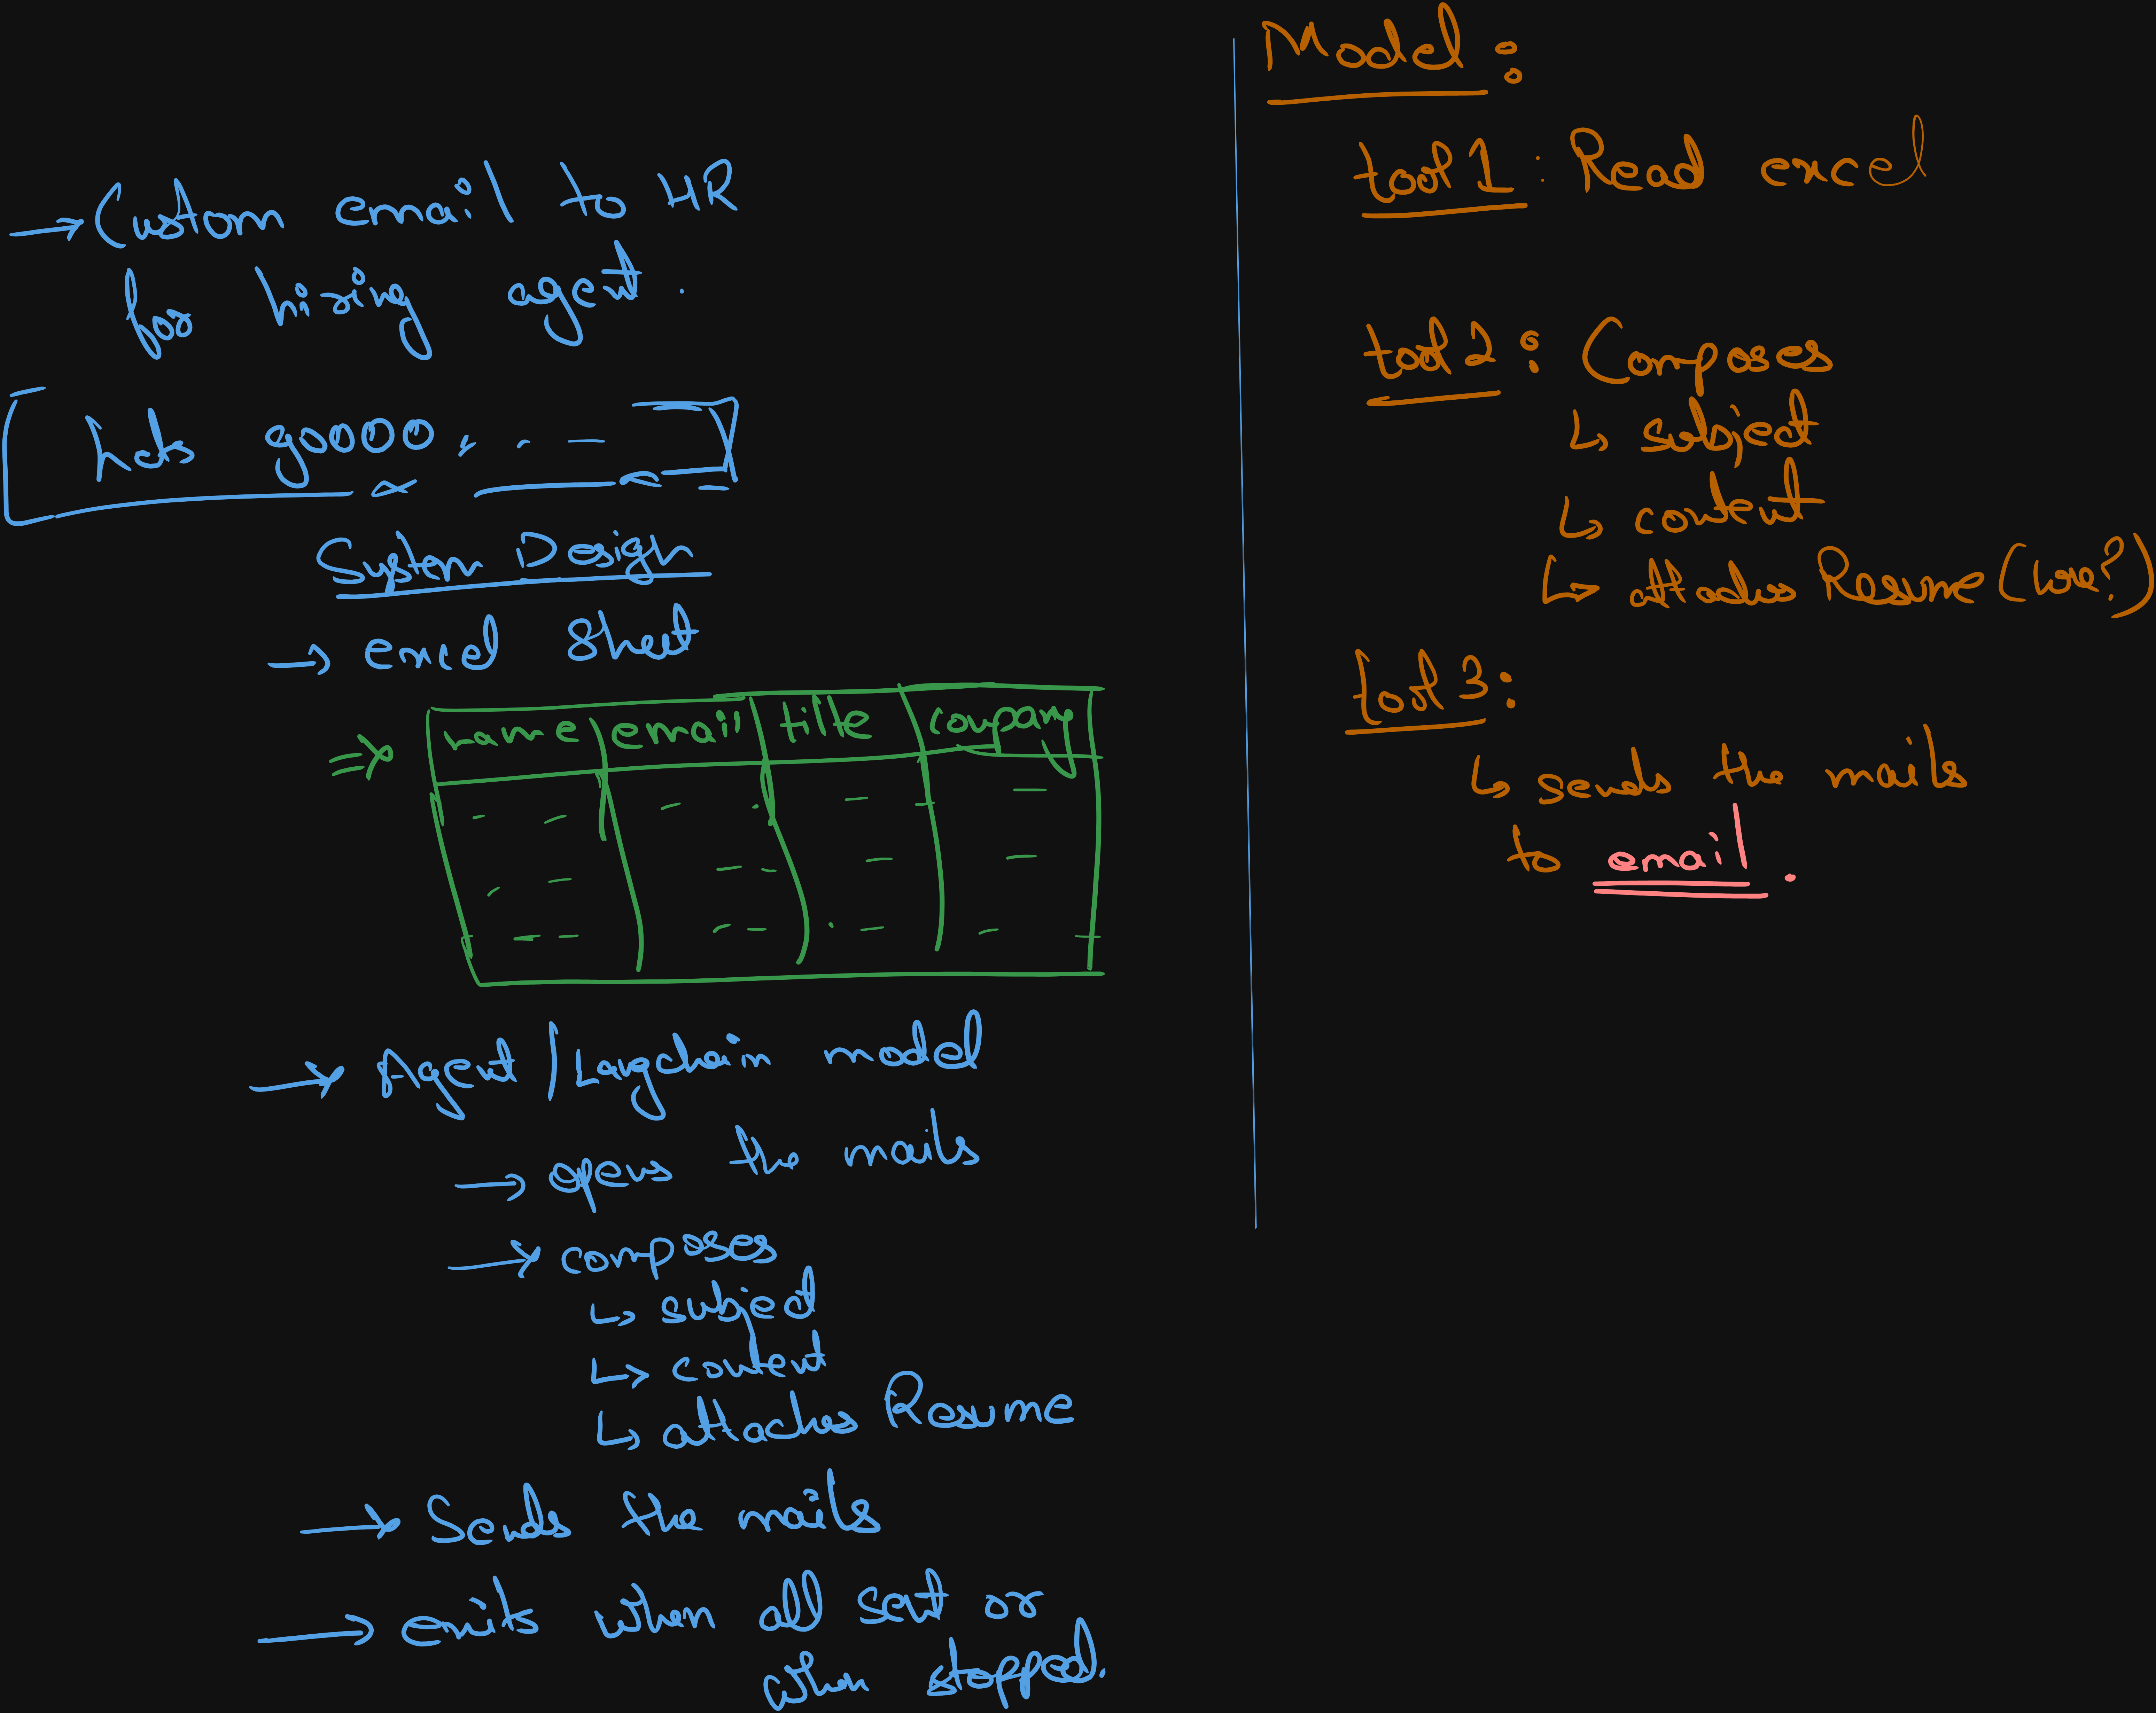 → Custom email to HR
for hiring agent.
[Lets gooooo. . . —]
System Design
→ excel Sheet
⇒ name email title company
→ Agent | Langchain model
→ opens the mails
→ composes
↳ subject
↳ content
↳ attaches Resume
→ Sends the mails
→ exits when all sent or
when stopped.
Model:
tool 1: Read excel
tool 2: Composes
↳ subject
↳ content
↳ attaches Resume
tool 3:
↳ sends the mails
to email.